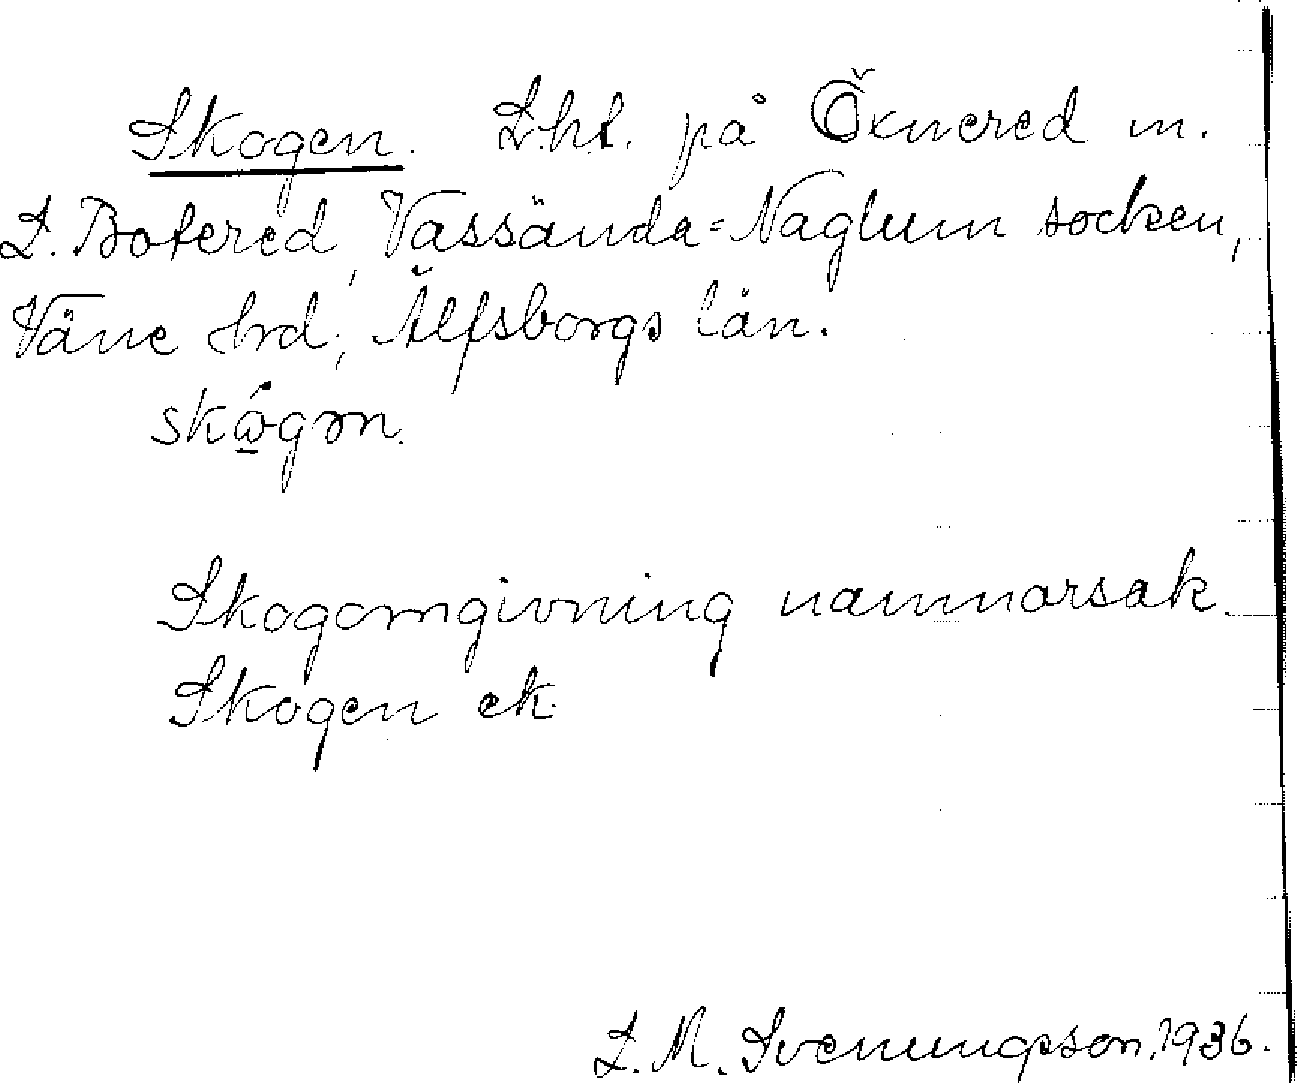 Skogen. Lht. på Öxnered m.
L. Botered, Vassända-Naglum socken,
Väne hrd, Älfsborgs län.
skógən.
Skogomgivning namnorsak.
Skogen ek.
S. M. Svenungsson. 1936.